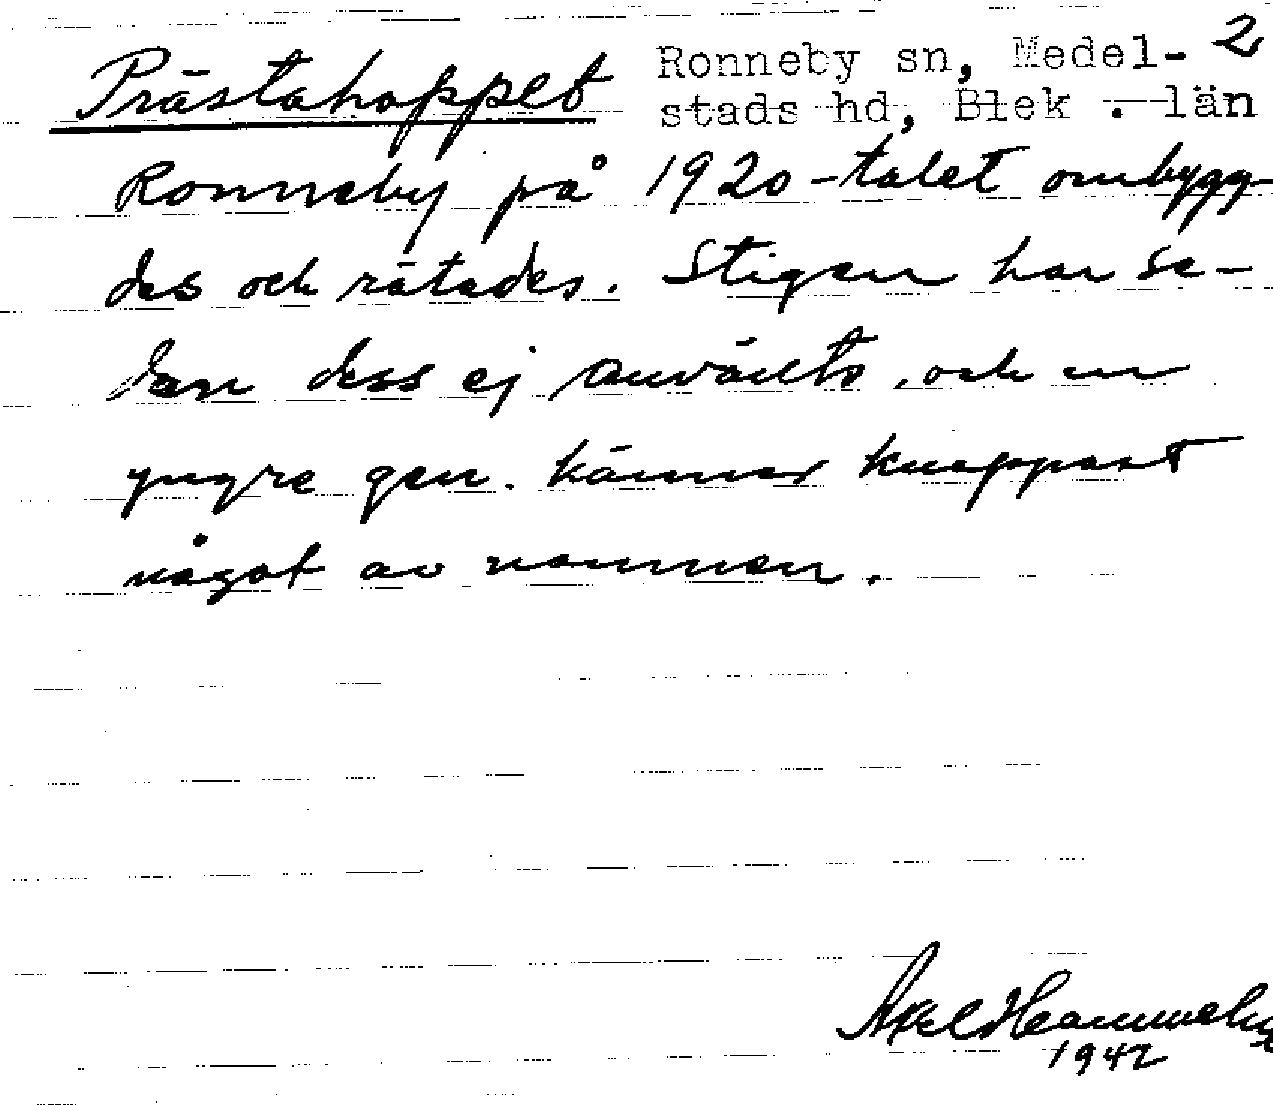 Prästahoppet Ronneby sn, Medel- 2
stads hd, Blek. län
Ronneby på 1920-talet ombygg-
des och rätades. Stigen har se-
dan dess ej använts, och en
yngre gen. känner knappast
något av namnen.
Axel
1942